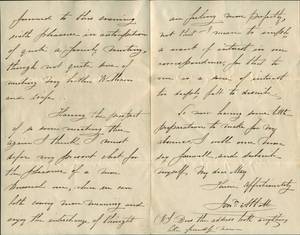 forward to this evening
with pleasure in anticipation
of quite a family meeting,
though not quite sure of
meeting my brother William
and wife.
Having the prospect
of a soon meeting then
again I think I must
defer my present chat for
the pleasure of a more
personal one, when we can
both convey more meaning and
enjoy the interchange of thought
and feeling more properly,
not that I mean to imply
a want of interest in our
correspondence, for that to
me is a source of interest
too deeply felt to describe.
To now having some little
preparation to make for my
absence I will once more
say farewell, and subscribe
myself, my dear May
Yours Affectionately
Does the address look anything
like